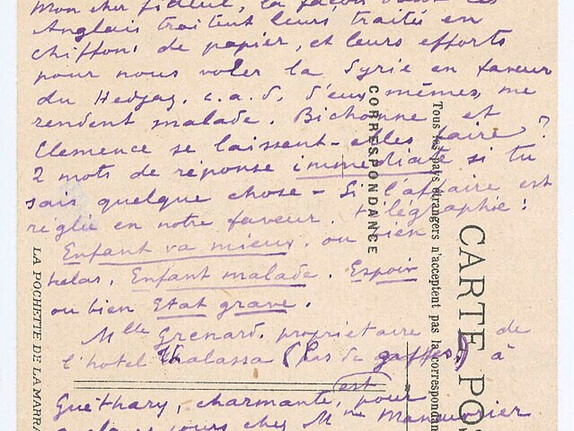 Mon cher filleul, la façon dont les
Anglais traitent leurs traités en
chiffons de papier, et leurs efforts
pour nous voler la Syrie en faveur
du Hedjaz. c.a.d. d'eux-mêmes, me
rendent malade. Bichonne et
Clemence se laissent-elles faire ?
2 mots de réponse immédiate si tu
sais quelque chose - Si l'affaire est
réglée en notre faveur. télégraphie :
Enfant va mieux. ou bien
helas, Enfant malade. Espoir
ou bien Etat grave.
Mlle Grenard, propriétaire de
l'hotel Thalassa (pas de gaffes,) à
est
Guéthary, charmante, pour
quelques jours chez Mme
CORRESPONDANCE
Tous les pays étrangers n'acceptent pas la correspondan
CARTE POS
LA POCHETTE DE LA MARRA